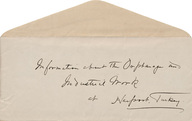 Information about the Orphanage and
Industrial Work
at Harpoot, Turkey